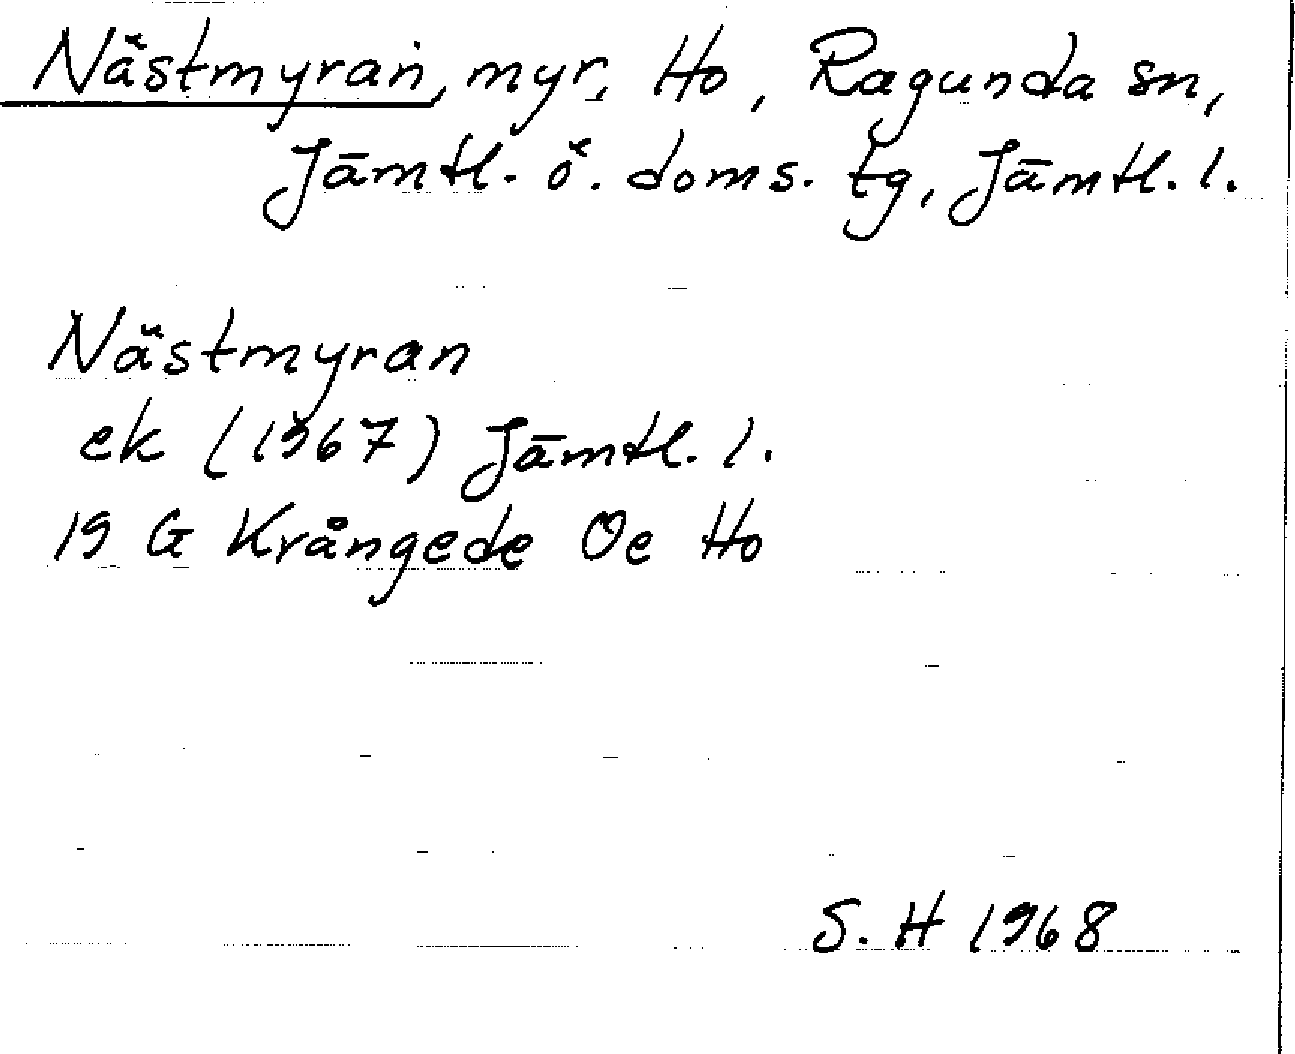 Nästmyran, myr, Ho, Ragunda sn,
Jämtl. ö. doms. tg, Jämtl. l.
Nästmyran
ek (1967) Jämtl. l.
19 G Krångede Oe Ho
S. H 1968